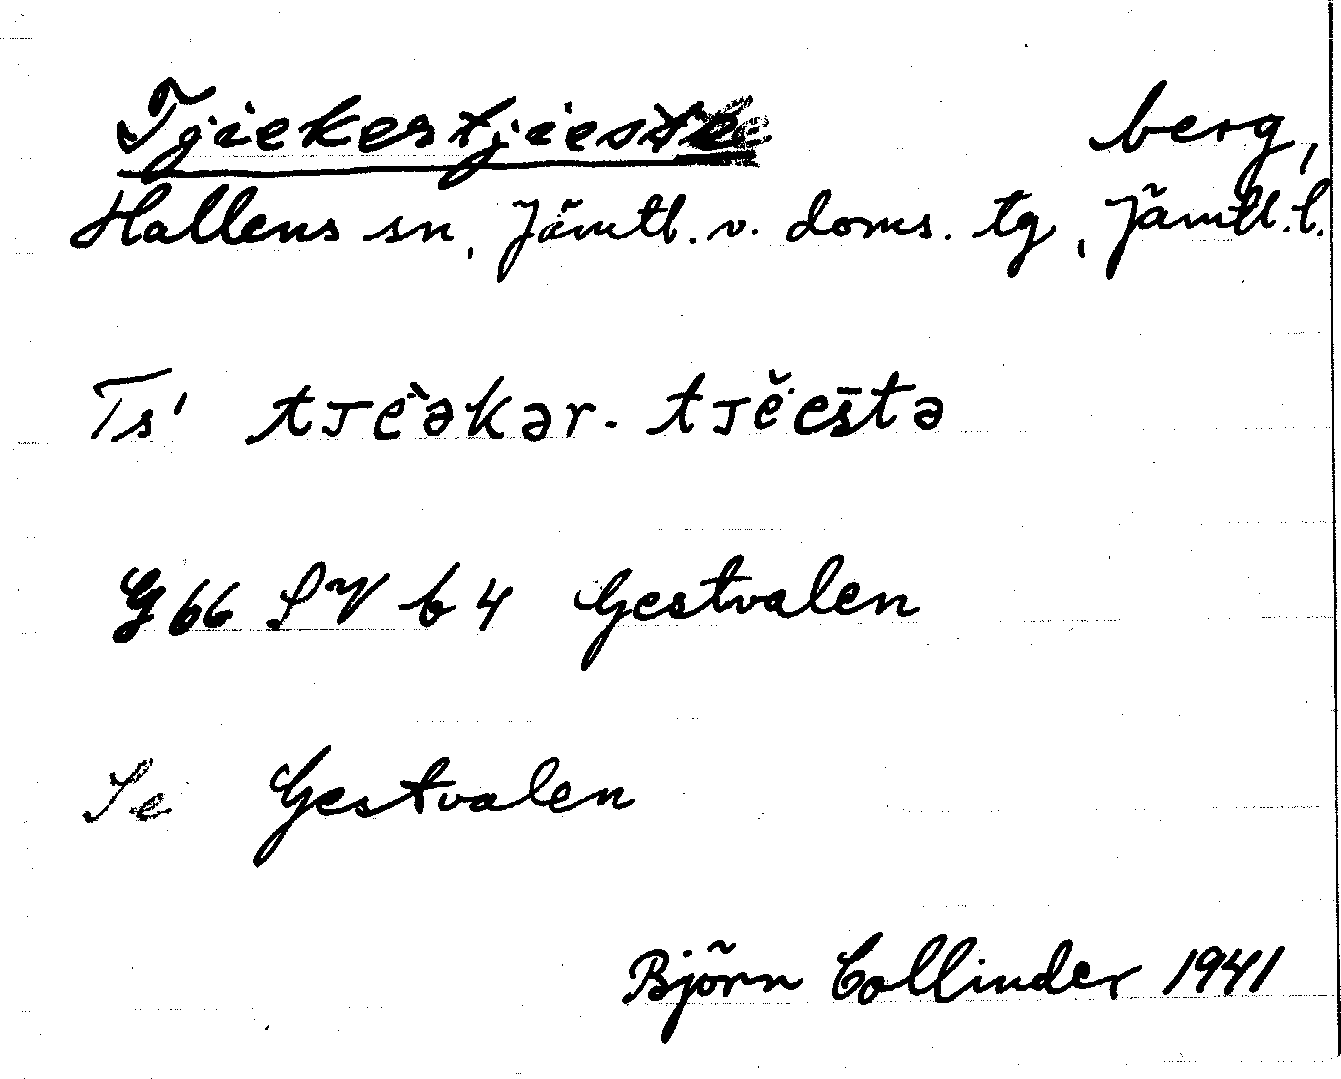 Tjiekerstjieste berg,
Hallens sn, Jämtl. v. doms. tg, Jämtl. l.
Ts'
G 66 SV b 4 Gestvalen
Se Gestvalen
Björn Collinder 1941